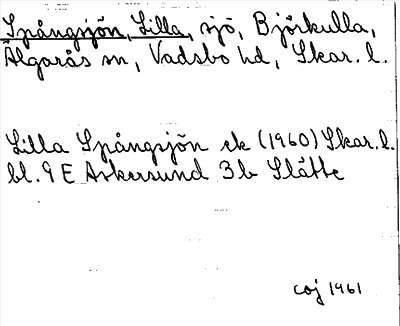 Spångsjön, Lilla, sjö, Björkulla,
Älgarås sn, Vadsbo hd, Skar. l.
Lilla Spångsjön ek (1960) Skar. l.
bl. 9 E Askersund 3b Slätte
coj 1961